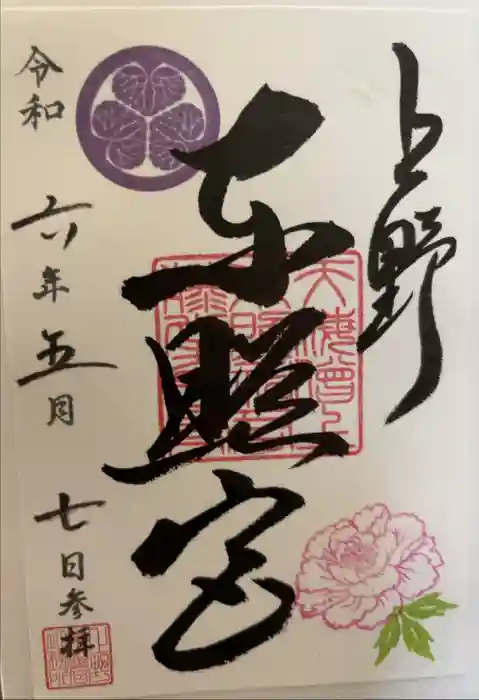 上野
東照宮
令和六年五月七日参拝